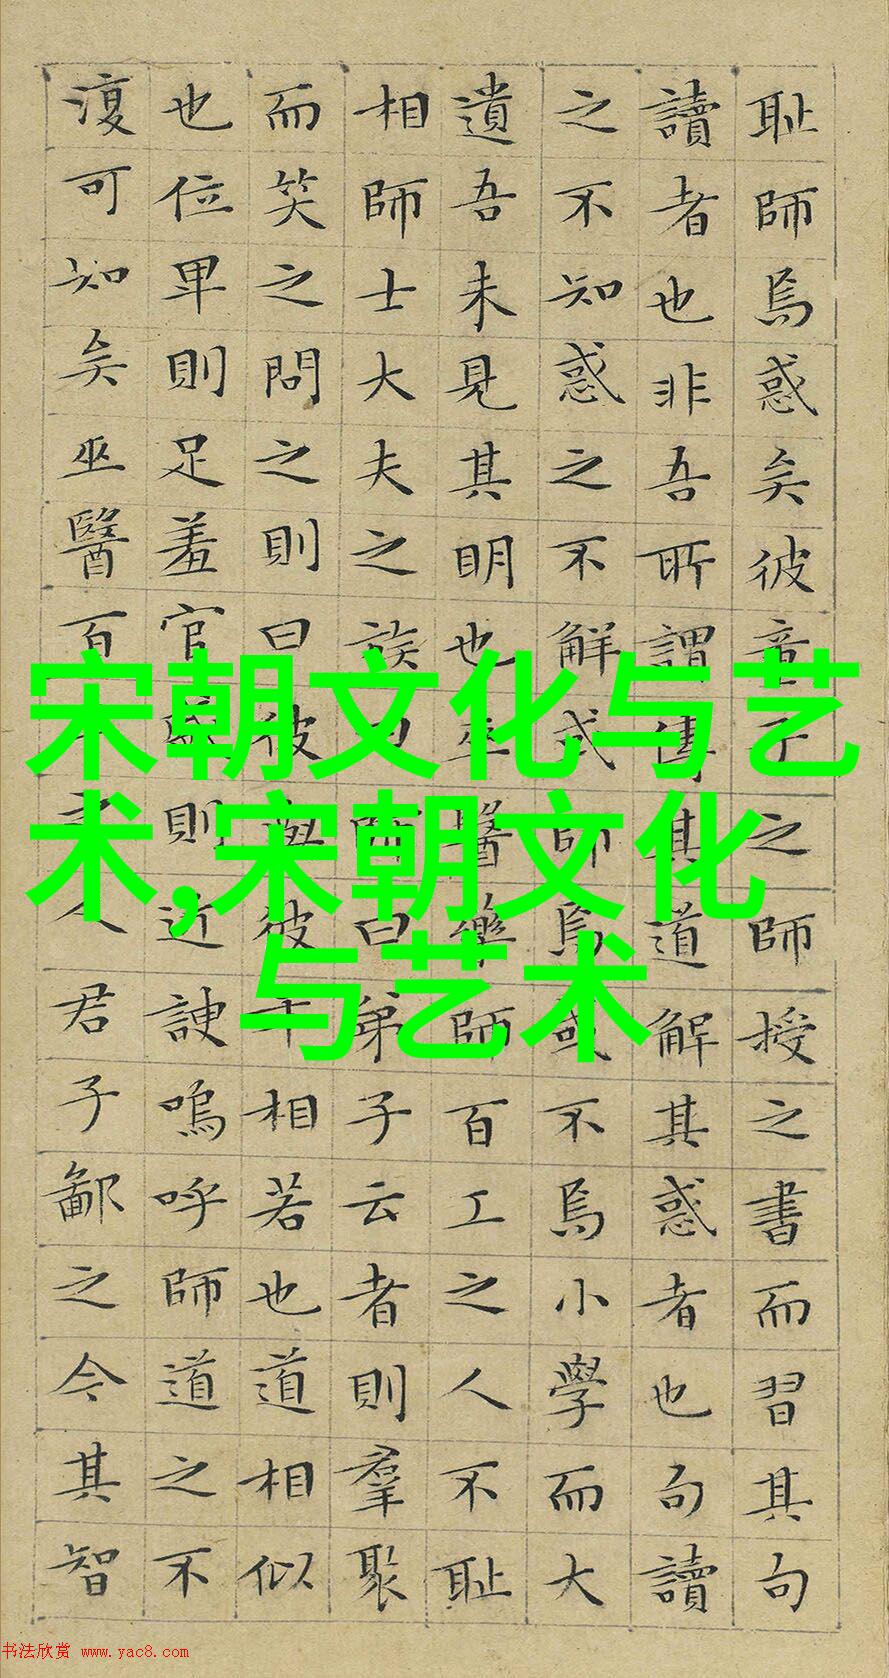 耻師焉惑矣彼童子之師授之書而習其句
讀者也非吾所謂傳其道解其惑者也句讀
之不知惑之不解或師焉或不焉小學而大
遺吾未見其明也巫醫樂師百工之人不耻
相師士大夫之族曰師曰弟子云者則羣聚
而笑之問之則曰彼與彼年相若也道相似
也位卑則足羞官盛則近諛嗚呼師道之不
復可知矣巫醫百工之人君子鄙之今其智
宋朝文化与艺
术,宋朝文化
与艺术
书法欣赏 www.yac8.com